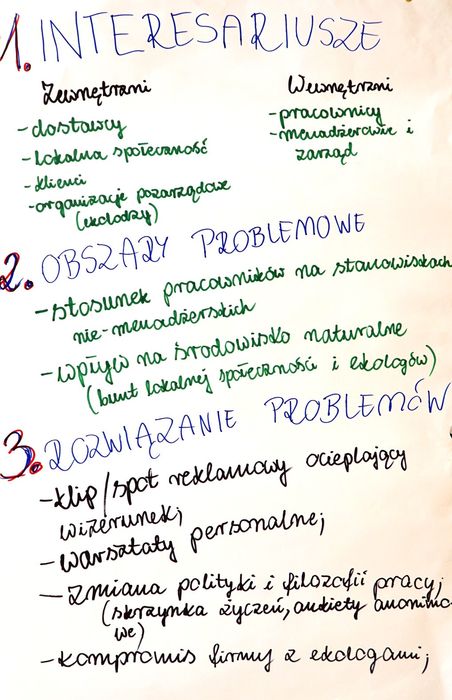 1. INTERESARIUSZE
Zewnętrzni
Wewnętrzni
- dostawcy
- lokalna społeczność
- klienci
- organizacje pozarządowe
(ekolodzy)
- pracownicy
- menadżerowie i
zarząd
2. OBSZARY PROBLEMOWE
- stosunek pracowników na stanowiskach
nie-menadżerskich
- wpływ na środowisko naturalne
(bunt lokalnej społeczności i ekologów)
3. ROZWIĄZANIE PROBLEMÓW
- klip/spot reklamowy ocieplający
wizerunek;
- warsztaty personalne;
- zmiana polityki i filozofii pracy;
(skrzynka życzeń, ankiety anonimo-
we)
- kompromis firmy z ekologami;